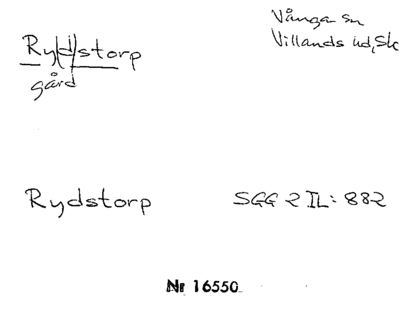 Ryd|storp
gård
Vånga sn
Villands hd, Sk
Rydstorp
SGG 2 IL: 882
Nr 16550